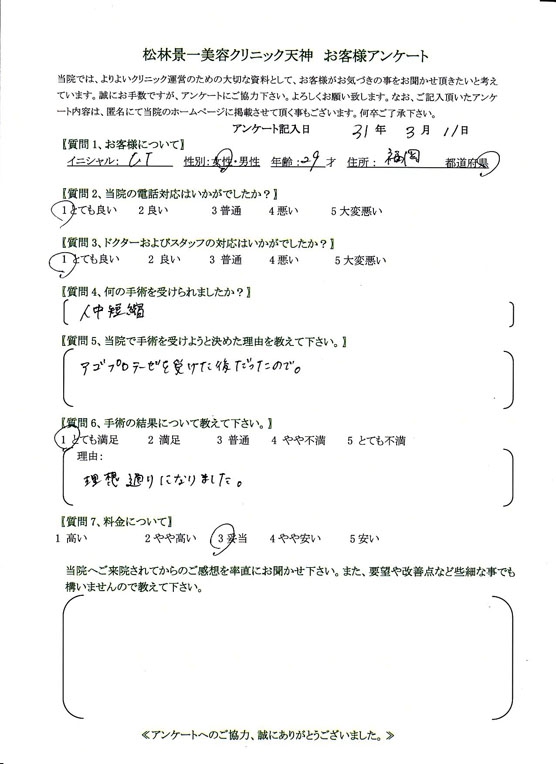 松林景一美容クリニック天神　お客様アンケート
当院では、よりよいクリニック運営のための大切な資料として、お客様がお気づきの事をお聞かせ頂きたいと考え
ています。誠にお手数ですが、アンケートにご協力下さい。よろしくお願い致します。なお、ご記入頂いたアンケ
ート内容は、匿名にて当院のホームページに掲載させて頂く事もございます。何卒ご了承下さい。
アンケート記入日　31 年　3 月　11 日
〖質問1、お客様について〗
イニシャル：　　性別：女性・男性　年齢：29 才　住所：　福岡　都道府県
〖質問2、当院の電話対応はいかがでしたか？〗
1 とても良い　2 良い　3 普通　4 悪い　5 大変悪い
〖質問3、ドクターおよびスタッフの対応はいかがでしたか？〗
1 とても良い　2 良い　3 普通　4 悪い　5 大変悪い
〖質問4、何の手術を受けられましたか？〗
人中短縮
〖質問5、当院で手術を受けようと決めた理由を教えて下さい。〗
アゴプロテーゼを受けた後だったので。
〖質問6、手術の結果について教えて下さい。〗
1 とても満足　2 満足　3 普通　4 やや不満　5 とても不満
理由：
理想通りになりました。
〖質問7、料金について〗
1 高い　2 やや高い　3 妥当　4 やや安い　5 安い
当院へご来院されてからのご感想を率直にお聞かせ下さい。また、要望や改善点など些細な事でも
構いませんので教えて下さい。
≪アンケートへのご協力、誠にありがとうございました。≫